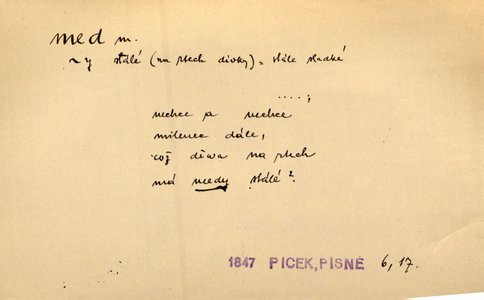 med m.
~y stálé (na rtech dívky) „ stále sladké
....;
nechce a nechce
milence dále,
což děwa na rtech
má medy stálé?
1847 PICEK, PÍSNĚ 6, 17.